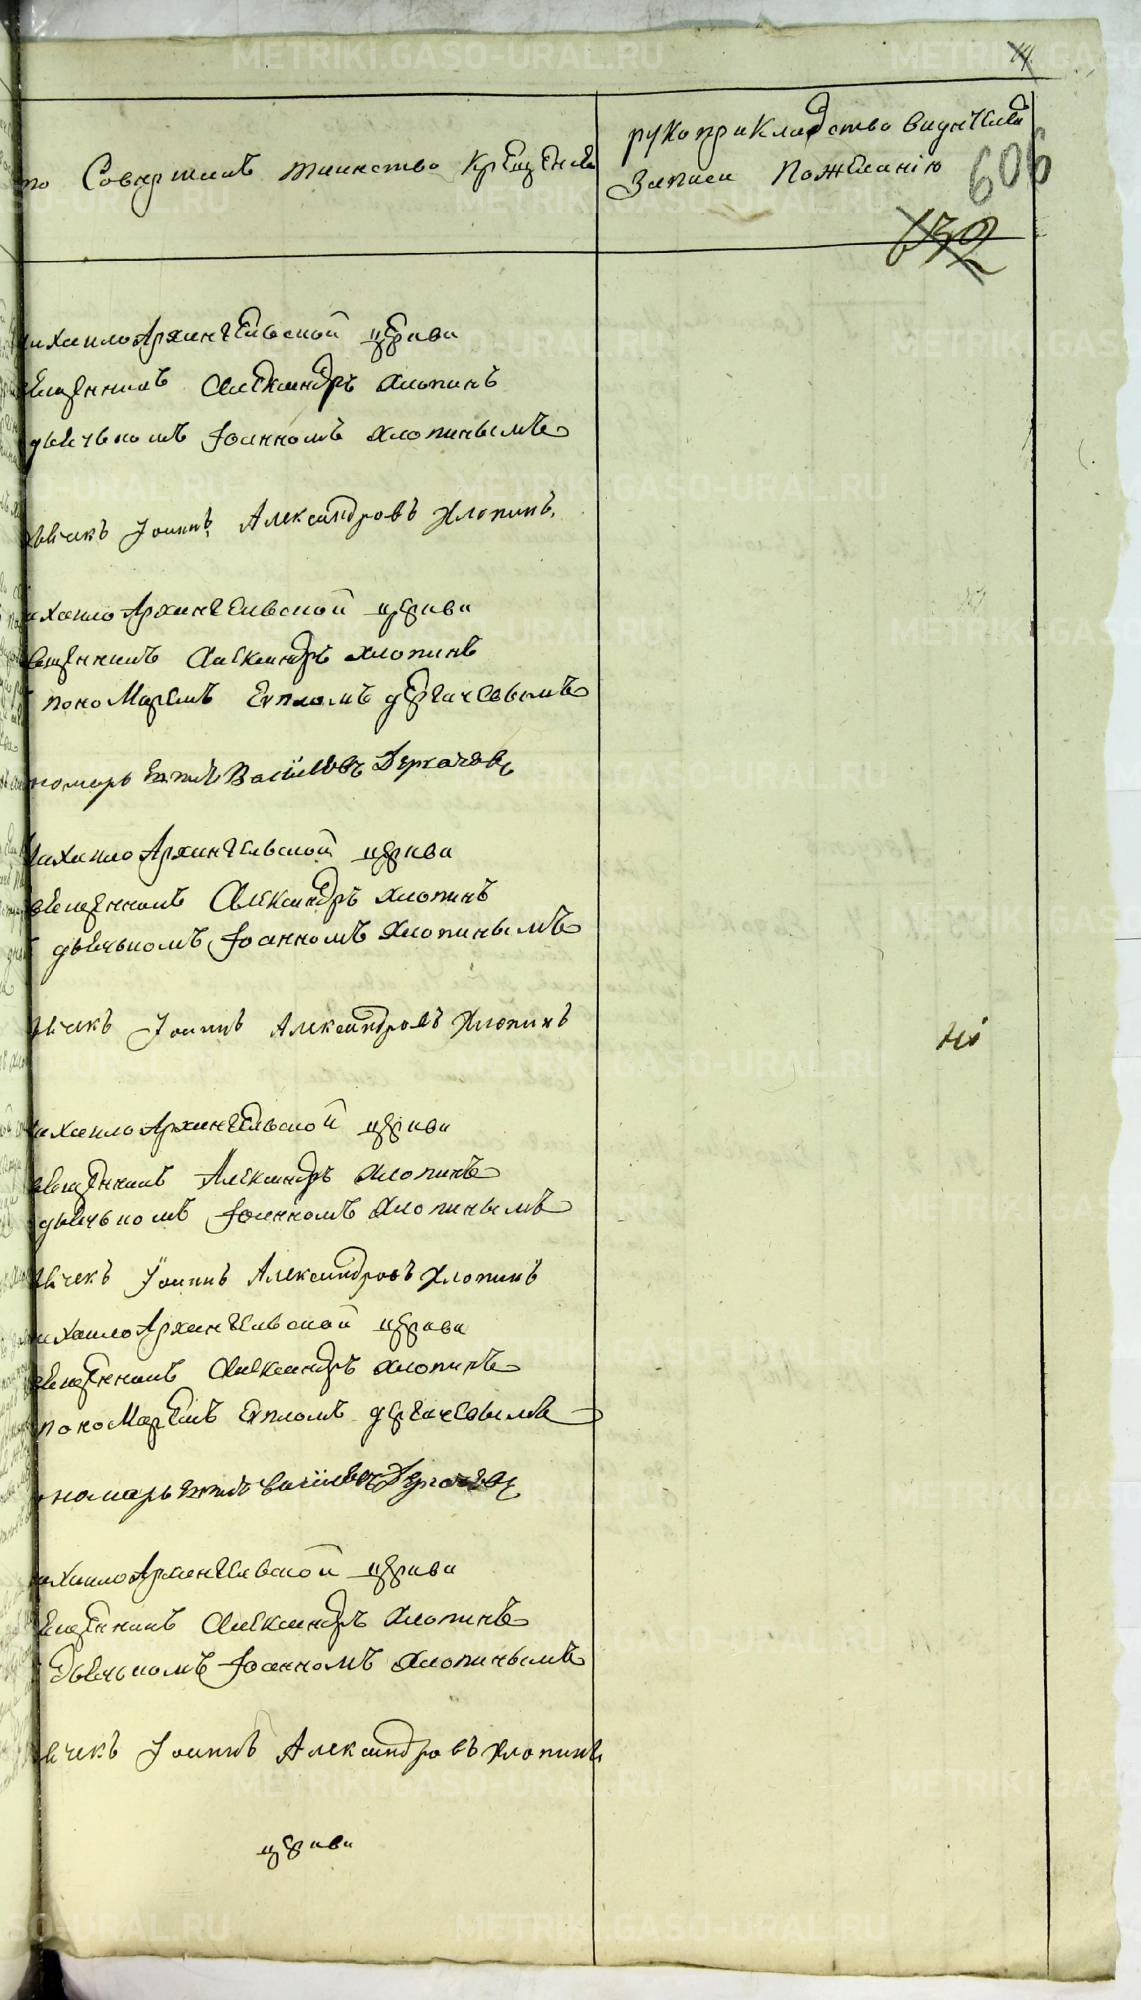 14
кто Совершалъ таинство Крещения
рукоприкладство видетелей
записи Пожеланию
606
132
Михаило Архангельской церкви
священникъ Александръ Хлопинъ
дьячькомъ Іоанномъ Хлопинымъ
дьячекъ Іоаннъ Александровъ Хлопинъ
Михаило Архангельской церкви
священникъ Александръ Хлопинъ
пономаремъ Евпломъ дергачевымъ
пономарь Евплъ Васильевъ Дергачевъ
Михаило Архангельской церкви
священникъ Александръ Хлопинъ
дьячькомъ Іоанномъ Хлопинымъ
дьячекъ Іоаннъ Александровъ Хлопинъ
Михаило Архангельской церкви
священникъ Александръ Хлопинъ
дьячькомъ Іоанномъ Хлопинымъ
дьячекъ Іоаннъ Александровъ Хлопинъ
Михаило Архангельской церкви
священникъ Александръ Хлопинъ
пономаремъ Евпломъ дергачевымъ
пономарь Евплъ Васильевъ Дергачевъ
Михаило Архангельской церкви
священникъ Александръ Хлопинъ
дьячькомъ Іоанномъ Хлопинымъ
дьячекъ Іоаннъ Александровъ Хлопинъ
церкви
METRIKI.GASO-URAL.RU